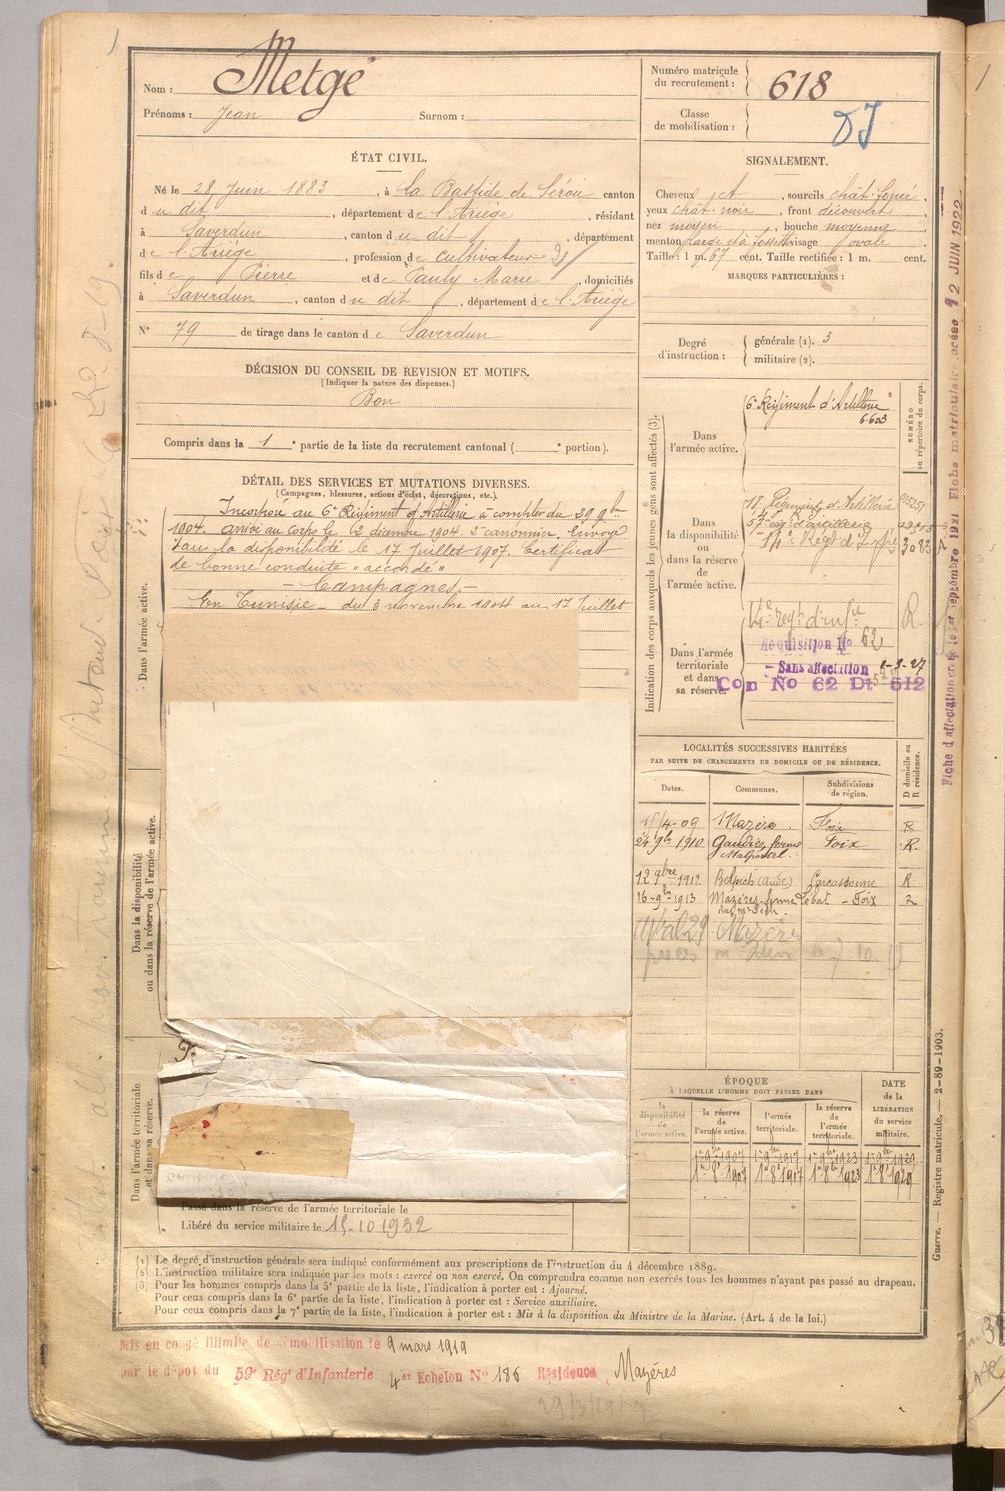 Nom : Metgé
Prénoms : Jean Surnom :
Numéro matricule du recrutement : 618
Classe de mobilisation :
ÉTAT CIVIL.
Né le 28 Juin 1883, à La Bastide de Sérou canton
du dit, département de l'Ariège, résidant
à Saverdun, canton du dit, département
de l'Ariège, profession de cultivateur
fils de Pierre et de Pauly Marie, domiciliés
à Saverdun, canton du dit, département de l'Ariège
N° 79 de tirage dans le canton de Saverdun
SIGNALEMENT.
Cheveux jet, sourcils chât. foncé,
yeux chât. noir, front découvert,
nez moyen, bouche moyenne,
menton large et à fossette visage ovale
Taille : 1 m. 67 cent. Taille rectifiée : 1 m. cent.
MARQUES PARTICULIÈRES :
Degré d'instruction : générale (1). 3
militaire (2).
DÉCISION DU CONSEIL DE REVISION ET MOTIFS.
(Indiquer la nature des dispenses.)
Bon
Compris dans la 1e partie de la liste du recrutement cantonal ( e portion).
DÉTAIL DES SERVICES ET MUTATIONS DIVERSES.
(Campagnes, blessures, actions d'éclat, décorations, etc.)
Incorporé au 6e Régiment d'Artillerie à compter du 29 9bre
1904. Arrivé au corps le 2 décembre 1904. 2e canonnier. Envoyé
dans la disponibilité le 17 Juillet 1907. Certificat
de bonne conduite "accordé"
— Campagnes —
En Tunisie du 3 novembre 1904 au 17 Juillet
Dans l'armée active.
Dans la disponibilité ou dans la réserve de l'armée active.
Dans l'armée territoriale et dans sa réserve.
Passé dans la réserve de l'armée territoriale le
Libéré du service militaire le 15-10 1932
Indication des corps auxquels les jeunes gens sont affectés (3).
NUMÉRO au répertoire du corps.
Dans l'armée active.
6e Régiment d'Artillerie
6.603
Dans la disponibilité ou dans la réserve de l'armée active.
18e Régiment d'Artillerie
57e reg. d'artillerie
3083
Dans l'armée territoriale et dans sa réserve.
R
Réquisition No 62
- Sans affectation 1-3-27
Con No 62 Dt 512
Fiche d'affectation créée le 1er septembre 1921 Fiche matriculaire créée 12 JUIN 1922
LOCALITÉS SUCCESSIVES HABITÉES
PAR SUITE DE CHANGEMENTS DE DOMICILE OU DE RÉSIDENCE.
Dates. Communes. Subdivisions de région. D domicile ou R résidence.
11/4-09 Mazère. Foix R
24 9bre 1910 Gaudiès, ferme Malportel. Foix R.
12 9bre 1912 Belpech (Aude) Carcassonne R
16-9bre-1913 Mazères-ferme Lebat - Foix R
Mazère
ÉPOQUE
À LAQUELLE L'HOMME DOIT PASSER DANS
la disponibilité de l'armée active.
la réserve de l'armée active.
l'armée territoriale.
la réserve de l'armée territoriale.
DATE de la LIBÉRATION du service militaire.
1er 9bre 1907 1er 9bre 1917 1er 9bre 1923 1er 9bre 1929
1er 8bre 1907 1er 8bre 1917 1er 8bre 1923 1er 8bre 1929
Guerre. — Registre matricule. — 2-89-1903.
(1) Le degré d'instruction générale sera indiqué conformément aux prescriptions de l'instruction du 4 décembre 1889.
(2) L'instruction militaire sera indiquée par les mots : exercé ou non exercé. On comprendra comme non exercés tous les hommes n'ayant pas passé au drapeau.
(3) Pour les hommes compris dans la 5e partie de la liste, l'indication à porter est : Ajourné.
Pour ceux compris dans la 6e partie de la liste, l'indication à porter est : Service auxiliaire.
Pour ceux compris dans la 7e partie de la liste, l'indication à porter est : Mis à la disposition du Ministre de la Marine. (Art. 4 de la loi.)
Mis en congé illimité de démobilisation le 9 mars 1919
par le dépôt du 59e Régt d'Infanterie 4er Echelon No 186 Résidence Mazéres
29/3/1919